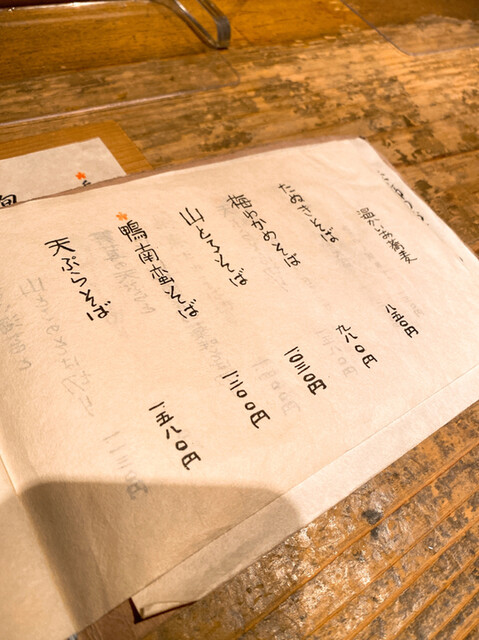 温かいお蕎麦
たぬきそば
八五〇円
梅わかめそば
九八〇円
山とろそば
一〇三〇円
鴨南蛮そば
一三〇〇円
天ぷらそば
一五八〇円